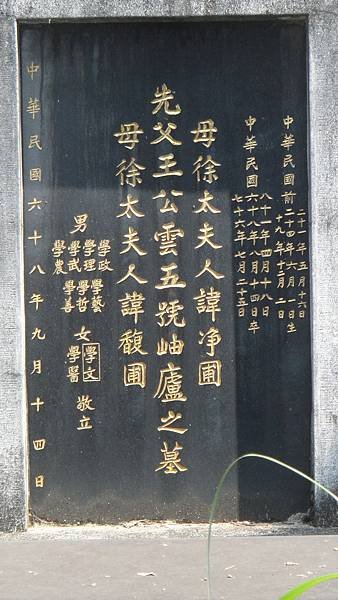 中華民國前
二十二年五月十六日
二十四年六月一日生
十九年
中華民國
八十年四月十八日
六十八年八月十四日卒
七十六年七月二十五日
母徐太夫人諱淨圃
先父王公雲五號岫廬之墓
母徐太夫人諱馥圃
男
學政
學理 學藝
學武 學哲
學農 學善
女
學文
學醫
敬立
中華民國六十八年九月十四日